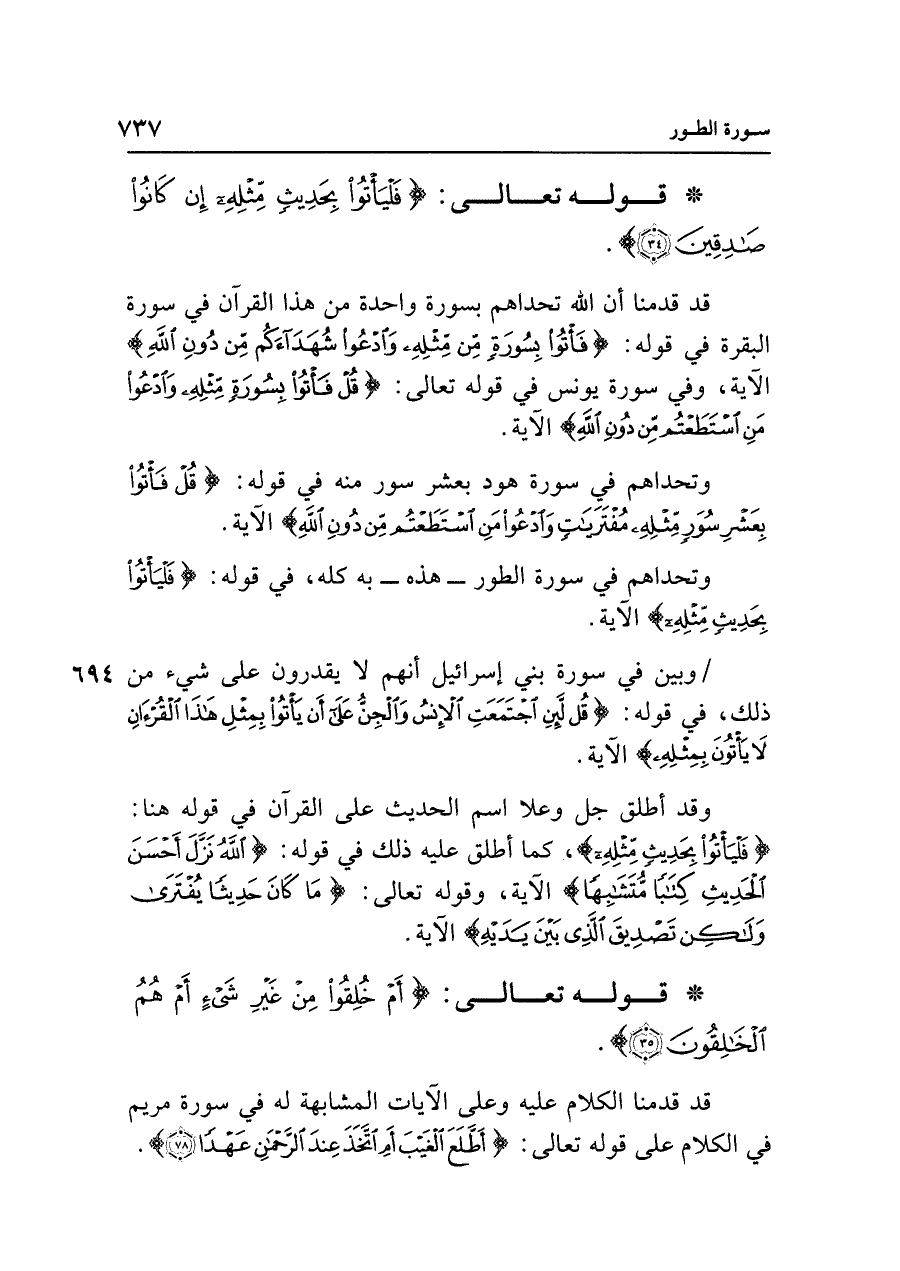 سورة الطور ٧٣٧
* قوله تعالى: ﴿فَلْيَأْتُوا۟ بِحَدِيثٍ مِّثْلِهِۦٓ إِن كَانُوا۟
صَـٰدِقِينَ ٣٤﴾.
قد قدمنا أن الله تحداهم بسورة واحدة من هذا القرآن في سورة
البقرة في قوله: ﴿فَأْتُوا۟ بِسُورَةٍ مِّن مِّثْلِهِۦ وَٱدْعُوا۟ شُهَدَآءَكُم مِّن دُونِ ٱللَّهِ﴾
الآية، وفي سورة يونس في قوله تعالى: ﴿قُلْ فَأْتُوا۟ بِسُورَةٍ مِّثْلِهِۦ وَٱدْعُوا۟
مَنِ ٱسْتَطَعْتُم مِّن دُونِ ٱللَّهِ﴾ الآية.
وتحداهم في سورة هود بعشر سور منه في قوله: ﴿قُلْ فَأْتُوا۟
بِعَشْرِ سُوَرٍ مِّثْلِهِۦ مُفْتَرَيَـٰتٍ وَٱدْعُوا۟ مَنِ ٱسْتَطَعْتُم مِّن دُونِ ٱللَّهِ﴾ الآية.
وتحداهم في سورة الطور ــ هذه ــ به كله، في قوله: ﴿فَلْيَأْتُوا۟
بِحَدِيثٍ مِّثْلِهِۦٓ﴾ الآية.
/ وبين في سورة بني إسرائيل أنهم لا يقدرون على شيء من ٦٩٤
ذلك، في قوله: ﴿قُل لَّئِنِ ٱجْتَمَعَتِ ٱلْإِنسُ وَٱلْجِنُّ عَلَىٰٓ أَن يَأْتُوا۟ بِمِثْلِ هَـٰذَا ٱلْقُرْءَانِ
لَا يَأْتُونَ بِمِثْلِهِۦ﴾ الآية.
وقد أطلق جل وعلا اسم الحديث على القرآن في قوله هنا:
﴿فَلْيَأْتُوا۟ بِحَدِيثٍ مِّثْلِهِۦٓ﴾، كما أطلق عليه ذلك في قوله: ﴿ٱللَّهُ نَزَّلَ أَحْسَنَ
ٱلْحَدِيثِ كِتَـٰبًا مُّتَشَـٰبِهًا﴾ الآية، وقوله تعالى: ﴿مَا كَانَ حَدِيثًا يُفْتَرَىٰ
وَلَـٰكِن تَصْدِيقَ ٱلَّذِى بَيْنَ يَدَيْهِ﴾ الآية.
* قوله تعالى: ﴿أَمْ خُلِقُوا۟ مِنْ غَيْرِ شَىْءٍ أَمْ هُمُ
ٱلْخَـٰلِقُونَ ٣٥﴾.
قد قدمنا الكلام عليه وعلى الآيات المشابهة له في سورة مريم
في الكلام على قوله تعالى: ﴿أَطَّلَعَ ٱلْغَيْبَ أَمِ ٱتَّخَذَ عِندَ ٱلرَّحْمَـٰنِ عَهْدًا ٧٨﴾.